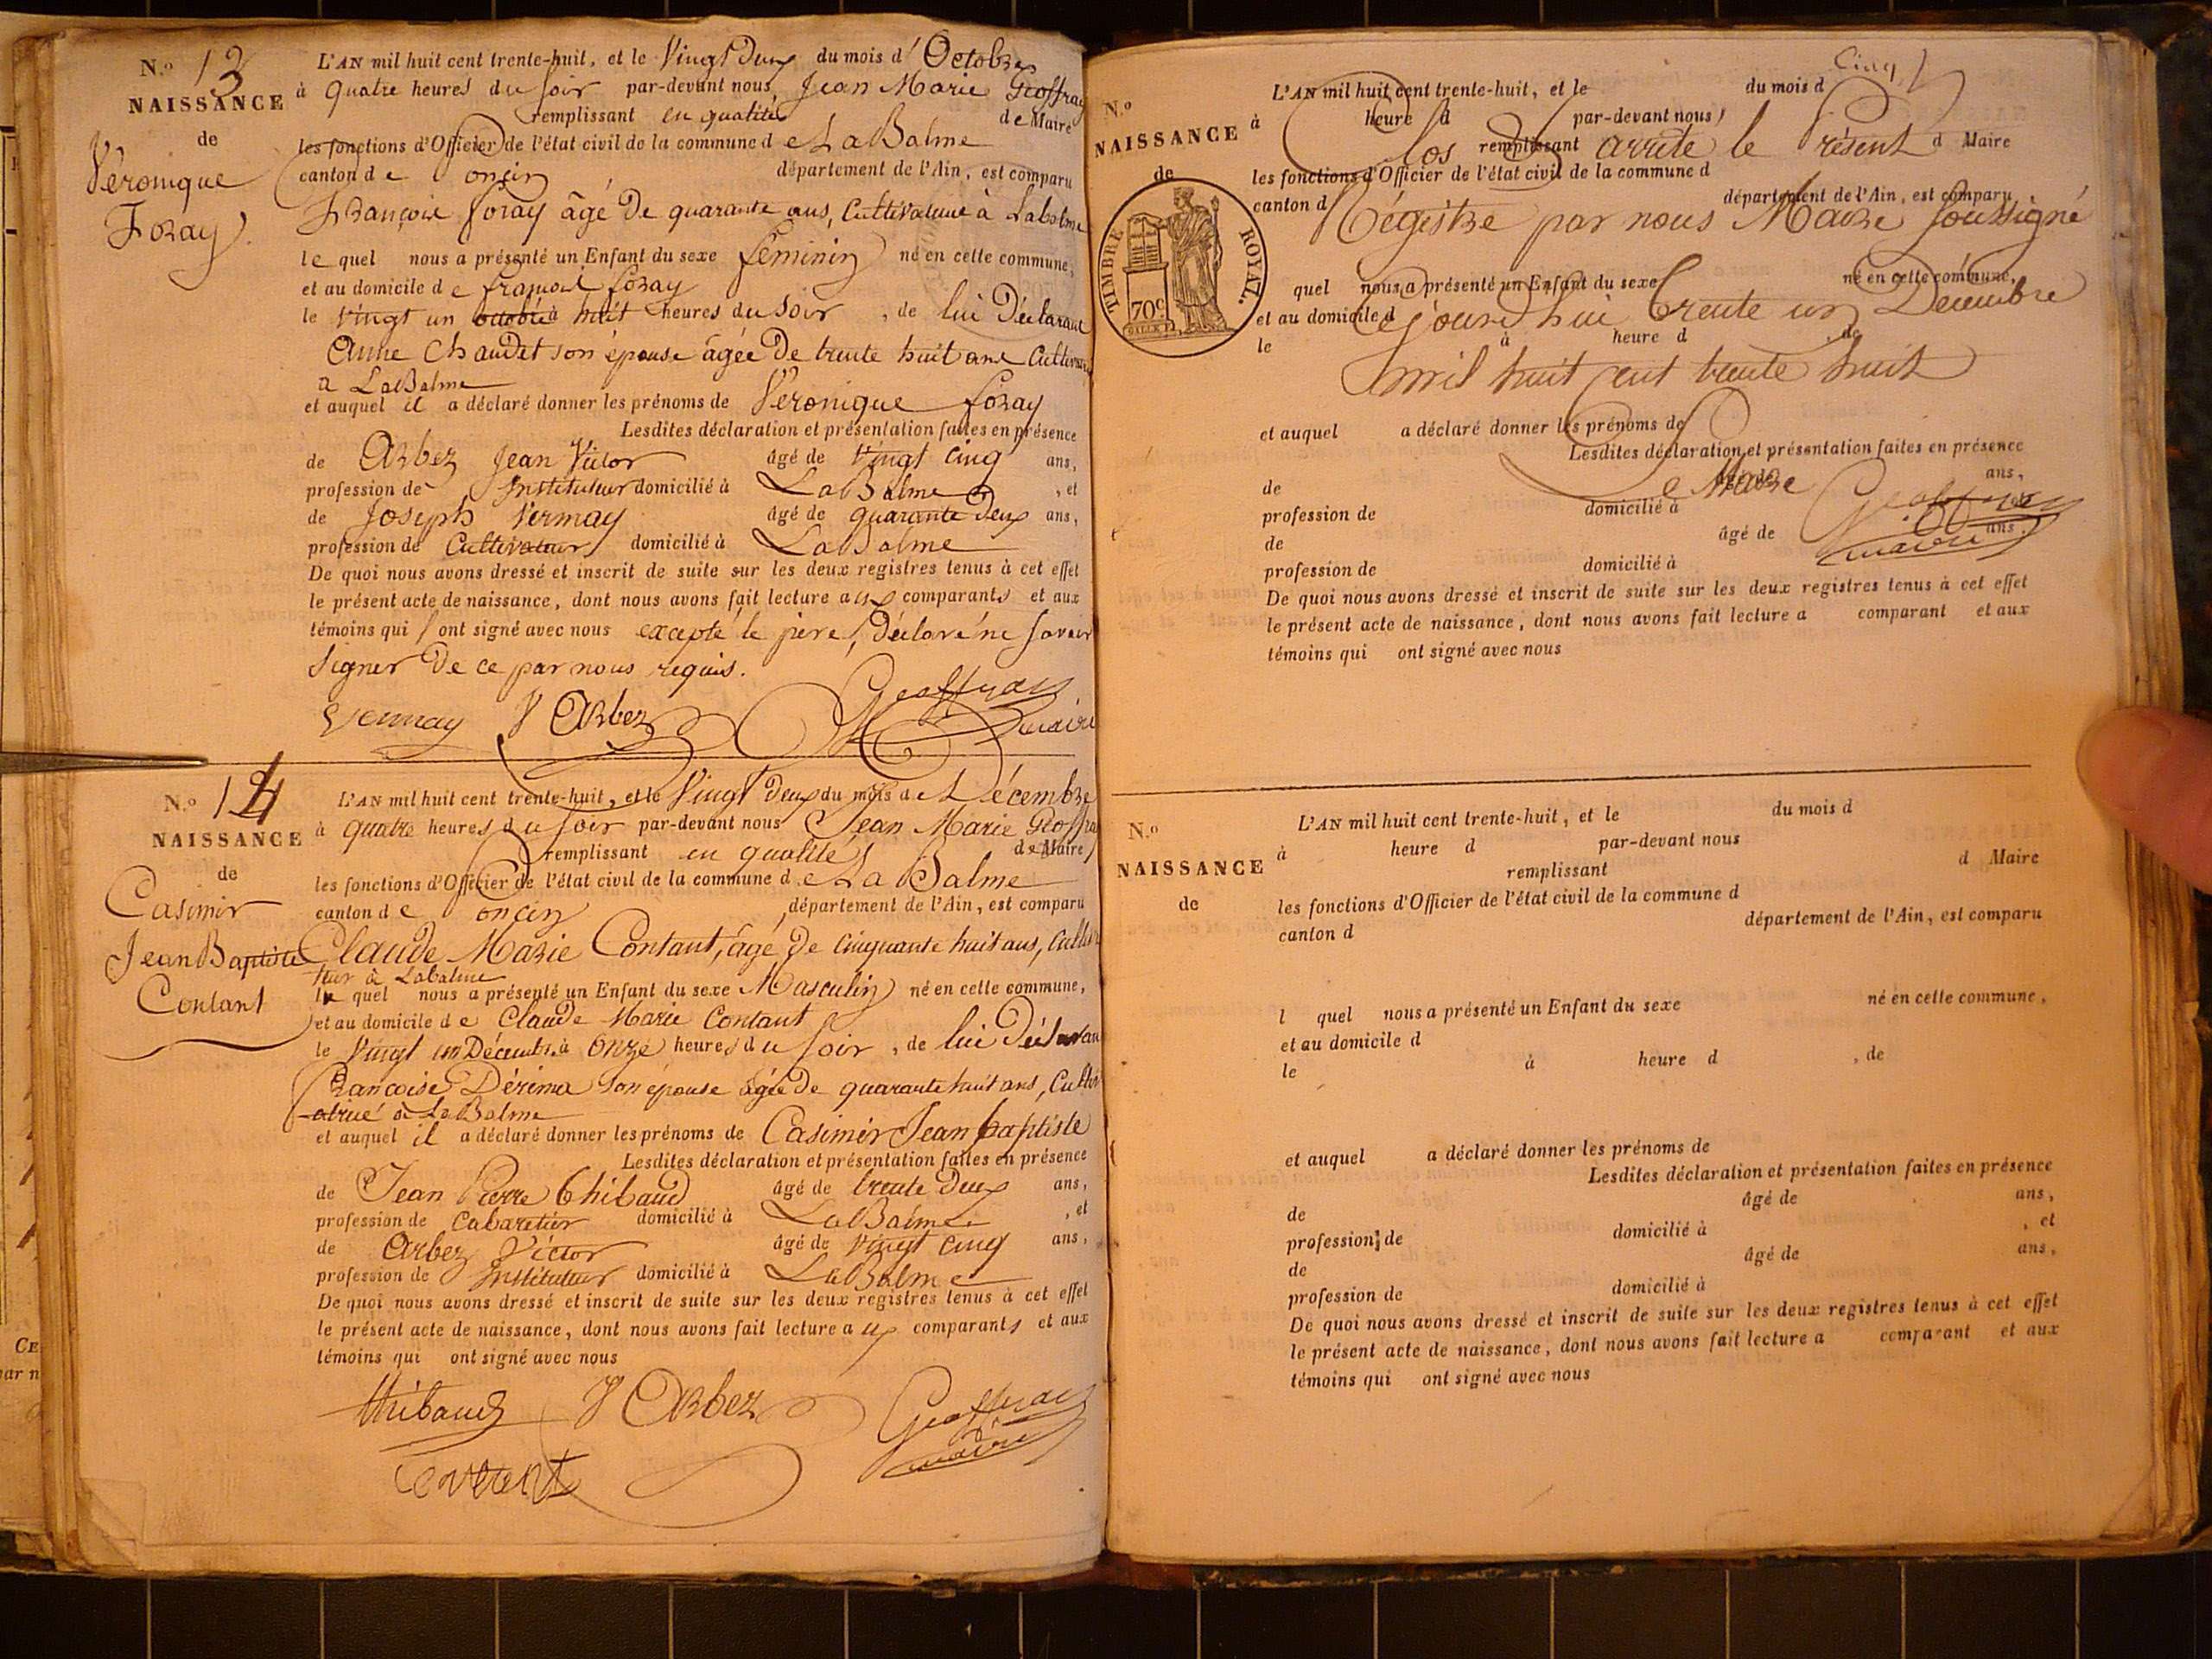 N.º 13
NAISSANCE
de
Véronique
Foray
L'AN mil huit cent trente-huit, et le Vingt Deux du mois d' Octobre
à quatre heures du soir par-devant nous Jean Marie Geoffray
remplissant en qualité de Maire
les fonctions d'Officier de l'état civil de la commune de La Balme
canton de oncin département de l'Ain, est comparu
François foray âgé De quarante ans, Cultivateur à Labalme
le quel nous a présenté un Enfant du sexe féminin né en cette commune,
et au domicile de françois foray
le vingt un octobre à huit heures du Soir, de lui Déclarant
Anne Chaudet son épouse âgée De trente huit ans
a LaBalme
et auquel il a déclaré donner les prénoms de Véronique foray
Lesdites déclaration et présentation faites en présence
de Arbez Jean Victor âgé de vingt cinq ans,
profession de Instituteur domicilié à LaBalme, et
de Joseph Vermay âgé de quarante Deux ans,
profession de Cultivateur domicilié à LaBalme
De quoi nous avons dressé et inscrit de suite sur les deux registres tenus à cet effet
le présent acte de naissance, dont nous avons fait lecture aux comparants et aux
témoins qui ont signé avec nous excepté le père, Déclaré ne savoir
Signer De ce par nous requis.
Vermay V Arbez Geoffray
maire
N.º 14
NAISSANCE
de
Casimir
Jean Baptiste
Contant
L'AN mil huit cent trente-huit, et le Vingt Deux du mois de Décembre
à quatre heures du soir par-devant nous Jean Marie Geoffray
remplissant en qualité de Maire
les fonctions d'Officier de l'état civil de la commune de La Balme
canton de oncin département de l'Ain, est comparu
Claude Marie Contant, âgé De Cinquante huit ans, Cultiva
teur à Labalme
le quel nous a présenté un Enfant du sexe Masculin né en cette commune,
et au domicile de Claude Marie Contant
le Vingt un Décembre à Onze heures du soir, de lui Déclarant
Françoise Dérima son épouse âgée De quarante huit ans, Cultiv
atrice à LaBalme
et auquel il a déclaré donner les prénoms de Casimir Jean baptiste
Lesdites déclaration et présentation faites en présence
de Jean Pierre Thibaud âgé de trente Deux ans,
profession de Cabaretier domicilié à LaBalme, et
de Arbez Victor âgé de vingt cinq ans,
profession de Instituteur domicilié à LaBalme
De quoi nous avons dressé et inscrit de suite sur les deux registres tenus à cet effet
le présent acte de naissance, dont nous avons fait lecture aux comparants et aux
témoins qui ont signé avec nous
thibaud V Arbez Geoffray
maire
Contant
Cinq
N.º
NAISSANCE
de
TIMBRE ROYAL.
70c
L'AN mil huit cent trente-huit, et le du mois d
à heure d par-devant nous
Clos remplissant arrêté le présent d Maire
les fonctions d'Officier de l'état civil de la commune d
canton d département de l'Ain, est comparu
Régistre par nous Maire soussigné
quel nous a présenté un Enfant du sexe né en cette commune,
et au domicile d
Cejourd'hui trente un Décembre
le à heure d , de
mil huit cent trente huit
et auquel a déclaré donner les prénoms de
Lesdites déclaration et présentation faites en présence
Le Maire
de âgé de ans,
Geoffray
profession de domicilié à
maire
de âgé de ans.
profession de domicilié à
De quoi nous avons dressé et inscrit de suite sur les deux registres tenus à cet effet
le présent acte de naissance, dont nous avons fait lecture a comparant et aux
témoins qui ont signé avec nous
N.º
NAISSANCE
de
L'AN mil huit cent trente-huit, et le du mois d
à heure d par-devant nous
remplissant d Maire
les fonctions d'Officier de l'état civil de la commune d
canton d département de l'Ain, est comparu
l quel nous a présenté un Enfant du sexe né en cette commune,
et au domicile d
le à heure d , de
et auquel a déclaré donner les prénoms de
Lesdites déclaration et présentation faites en présence
de âgé de ans,
profession de domicilié à , et
de âgé de ans,
profession de domicilié à
De quoi nous avons dressé et inscrit de suite sur les deux registres tenus à cet effet
le présent acte de naissance, dont nous avons fait lecture a comparant et aux
témoins qui ont signé avec nous